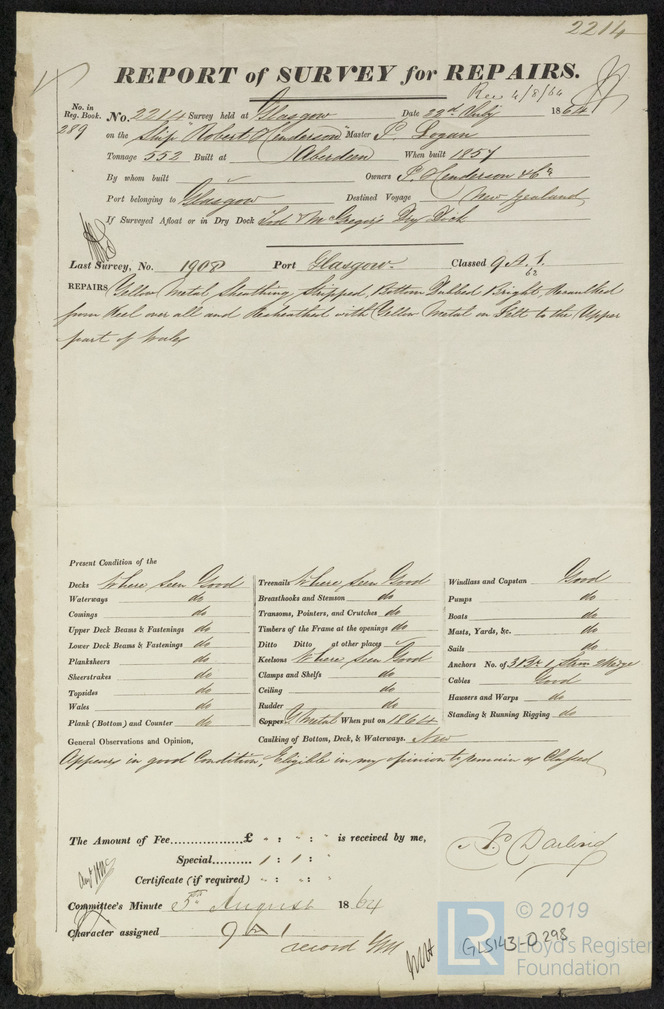 2214
REPORT of SURVEY for REPAIRS.
Rec 4/8/64
No. in Reg. Book.
289
No. 2214 Survey held at Glasgow Date 22nd July 1864
on the Ship "Robert Henderson" Master P. Logan
Tonnage 552 Built at Aberdeen When built 1857
By whom built Owners P. Henderson & Co
Port belonging to Glasgow Destined Voyage New Zealand
If Surveyed Afloat or in Dry Dock Tod & McGregor's Dry Dock
Last Survey, No. 1908 Port Glasgow. Classed 9 A. 1.
62
REPAIRS Yellow Metal Sheathing Stripped, Bottom Dubbed Bright, Recaulked
from Keel over all and Resheathed with Yellow Metal on Felt to the Upper
part of Wales
Present Condition of the
Decks Where Seen Good
Waterways do
Comings do
Upper Deck Beams & Fastenings do
Lower Deck Beams & Fastenings do
Planksheers do
Sheerstrakes do
Topsides do
Wales do
Plank (Bottom) and Counter do
Treenails Where Seen Good
Breasthooks and Stemson do
Transoms, Pointers, and Crutches do
Timbers of the Frame at the openings do
Ditto Ditto at other places
Keelsons Where Seen Good
Clamps and Shelfs do
Ceiling do
Rudder do
Copper Y Metal When put on 1864
Windlass and Capstan Good
Pumps do
Boats do
Masts, Yards, &c. do
Sails do
Anchors No. of 3 Br 1 Strm 2 Kedge
Cables Good
Hausers and Warps do
Standing & Running Rigging do
General Observations and Opinion, Caulking of Bottom, Deck, & Waterways. New
Appears in good Condition, Eligible in my opinion to remain as Classed
The Amount of Fee £ : : : is received by me,
Special 1 : 1 :
Certificate (if required) : :
Darling
Committee's Minute 5th August 1864
Character assigned 9 A 1
record
GLS143-0298
LR
© 2019
Lloyd's Register
Foundation